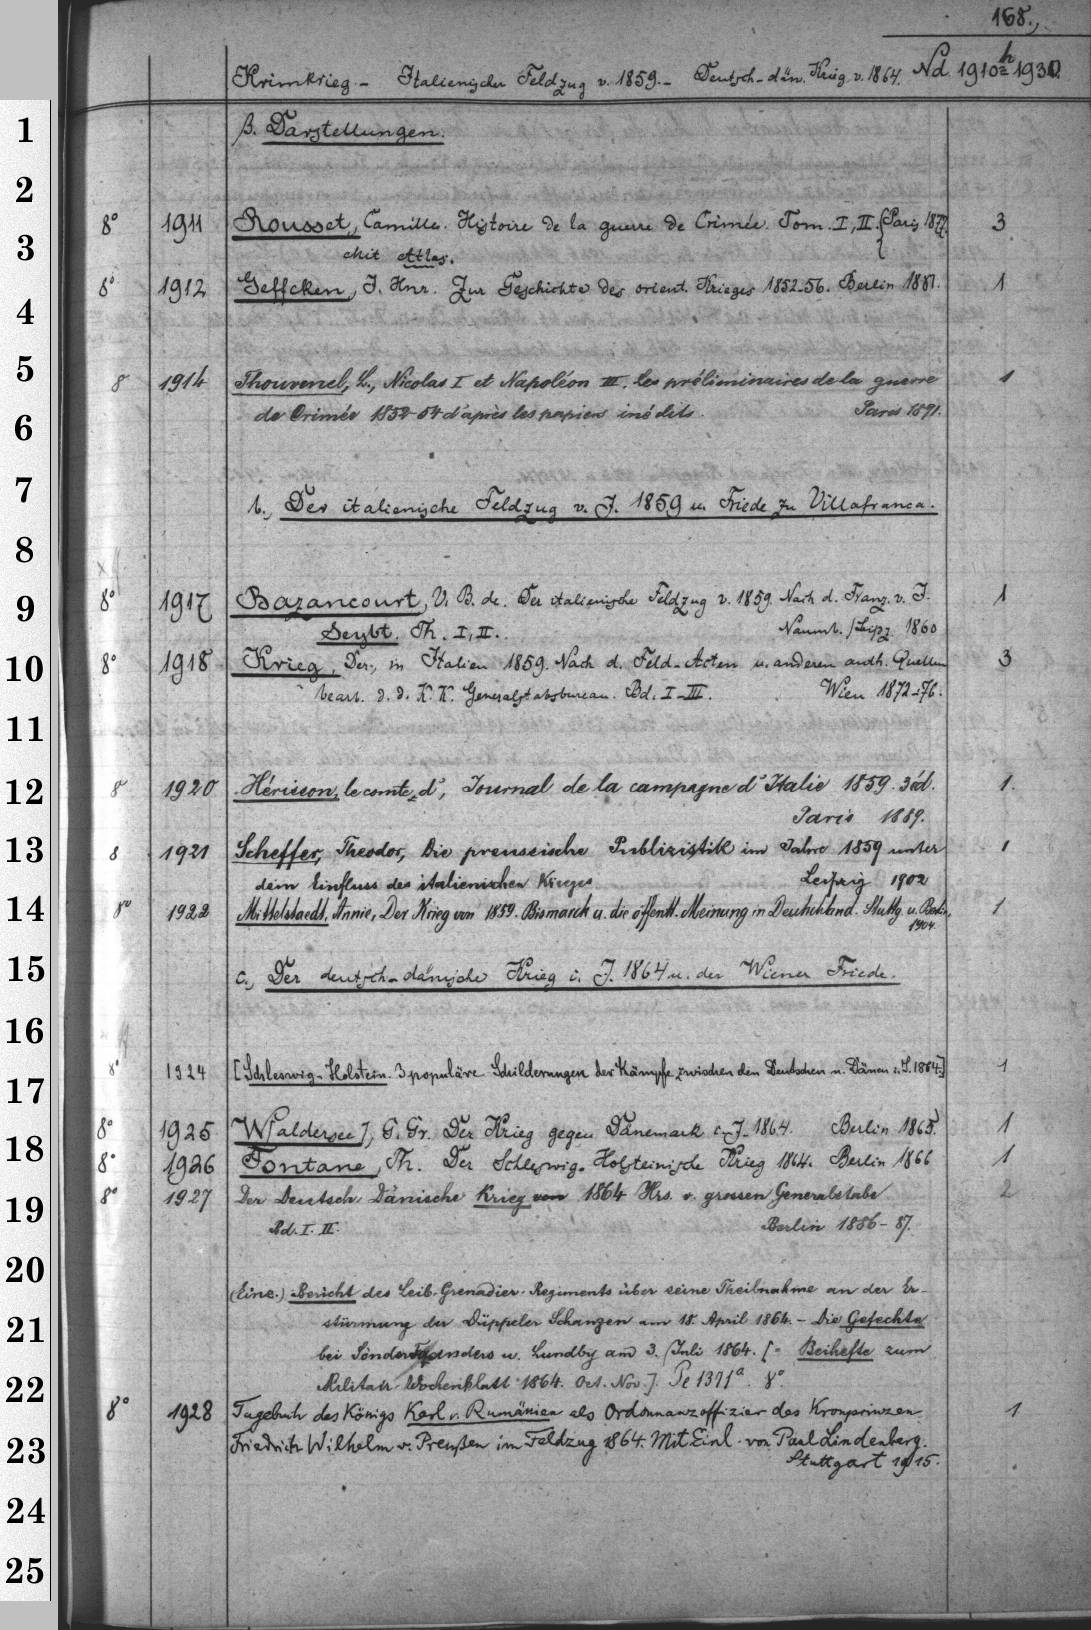 168.,
Krimkrieg. – Italienischer Feldzug v. 1859. – Deutsch-dän. Krieg. v. 1864. Nd 1910h = 1930.
1
β. Darstellungen.
2
8° 1911 Rousset, Camille. Histoire de la guerre de Crimée. Tom. I, II. {Paris 1877. 3
3
Mit Atlas.
8° 1912 Geffcken, J. Hnr. Zur Geschichte des orient. Krieges 1852-56. Berlin 1881. 1
4
5
8° 1914 Thouvenel, L., Nicolas I et Napoléon III. les préliminaires de la guerre 1
6
de Crimée 1852-54 d'après les papiers inédits. Paris 1891.
7
b., Der italienische Feldzug v. J. 1859 u. Friede zu Villafranca.
8
9
8° 1917 Bazancourt, V. B. de. Der italienische Feldzug v. 1859. Nach d. Franz. v. J. 1
Seybt. Th. I, II. Naumb./Leipz. 1860
10
8° 1918 Krieg, Der, in Italien 1859. Nach d. Feld-Acten u. anderen auth. Quellen 3
bearb. d. d. K. K. Generalstabsbureau. Bd. I-III. Wien 1872-76.
11
12
8° 1920 Hérisson, le comte d', Journal de la campagne d'Italie 1859. 3 éd. 1.
Paris 1889.
13
8 1921 Scheffer, Theodor, Die preussische Publizistik im Jahre 1859 unter 1
dem Einfluss des italienischen Krieges Leipzig 1902
14
8° 1922 Mittelstaedt, Annie, Der Krieg von 1859. Bismarck u. die öffentl. Meinung in Deutschland. Stuttg. u. Berlin, 1
1904.
15
c., Der deutsch-dänische Krieg i. J. 1864 u. der Wiener Friede.
16
8° 1924 [Schleswig-Holstein. 3 populäre Schilderungen der Kämpfe zwischen den Deutschen u. Dänen i. J. 1864.] 1
17
8° 1925 W[aldersee], G. Gr. Der Krieg gegen Dänemark i. J. 1864. Berlin 1865. 1
18
8° 1926 Fontane, Th. Der Schleswig-Holsteinische Krieg 1864. Berlin 1866 1
8° 1927 Der Deutsch-Dänische Krieg von 1864 Hrs. v. grossen Generalstabe 2
19
Bd. I. II. Berlin 1886-87.
20
(Eine.) Bericht des Leib-Grenadier-Regiments über seine Theilnahme an der Er-
21
stürmung der Düppeler Schanzen am 18. April 1864. – Die Gefechte
bei Sönder-Tranders u. Lundby am 3. Juli 1864. [= Beihefte zum
22
Militair-Wochenblatt 1864. Oct. Nov.]. Pe 1371a. 8°.
8° 1928 Tagebuch des Königs Karl v. Rumänien als Ordonnanzoffizier des Kronprinzen 1
23
Friedrich Wilhelm v. Preußen im Feldzug 1864. Mit Einl. von Paul Lindenberg.
Stuttgart 1915.
24
25